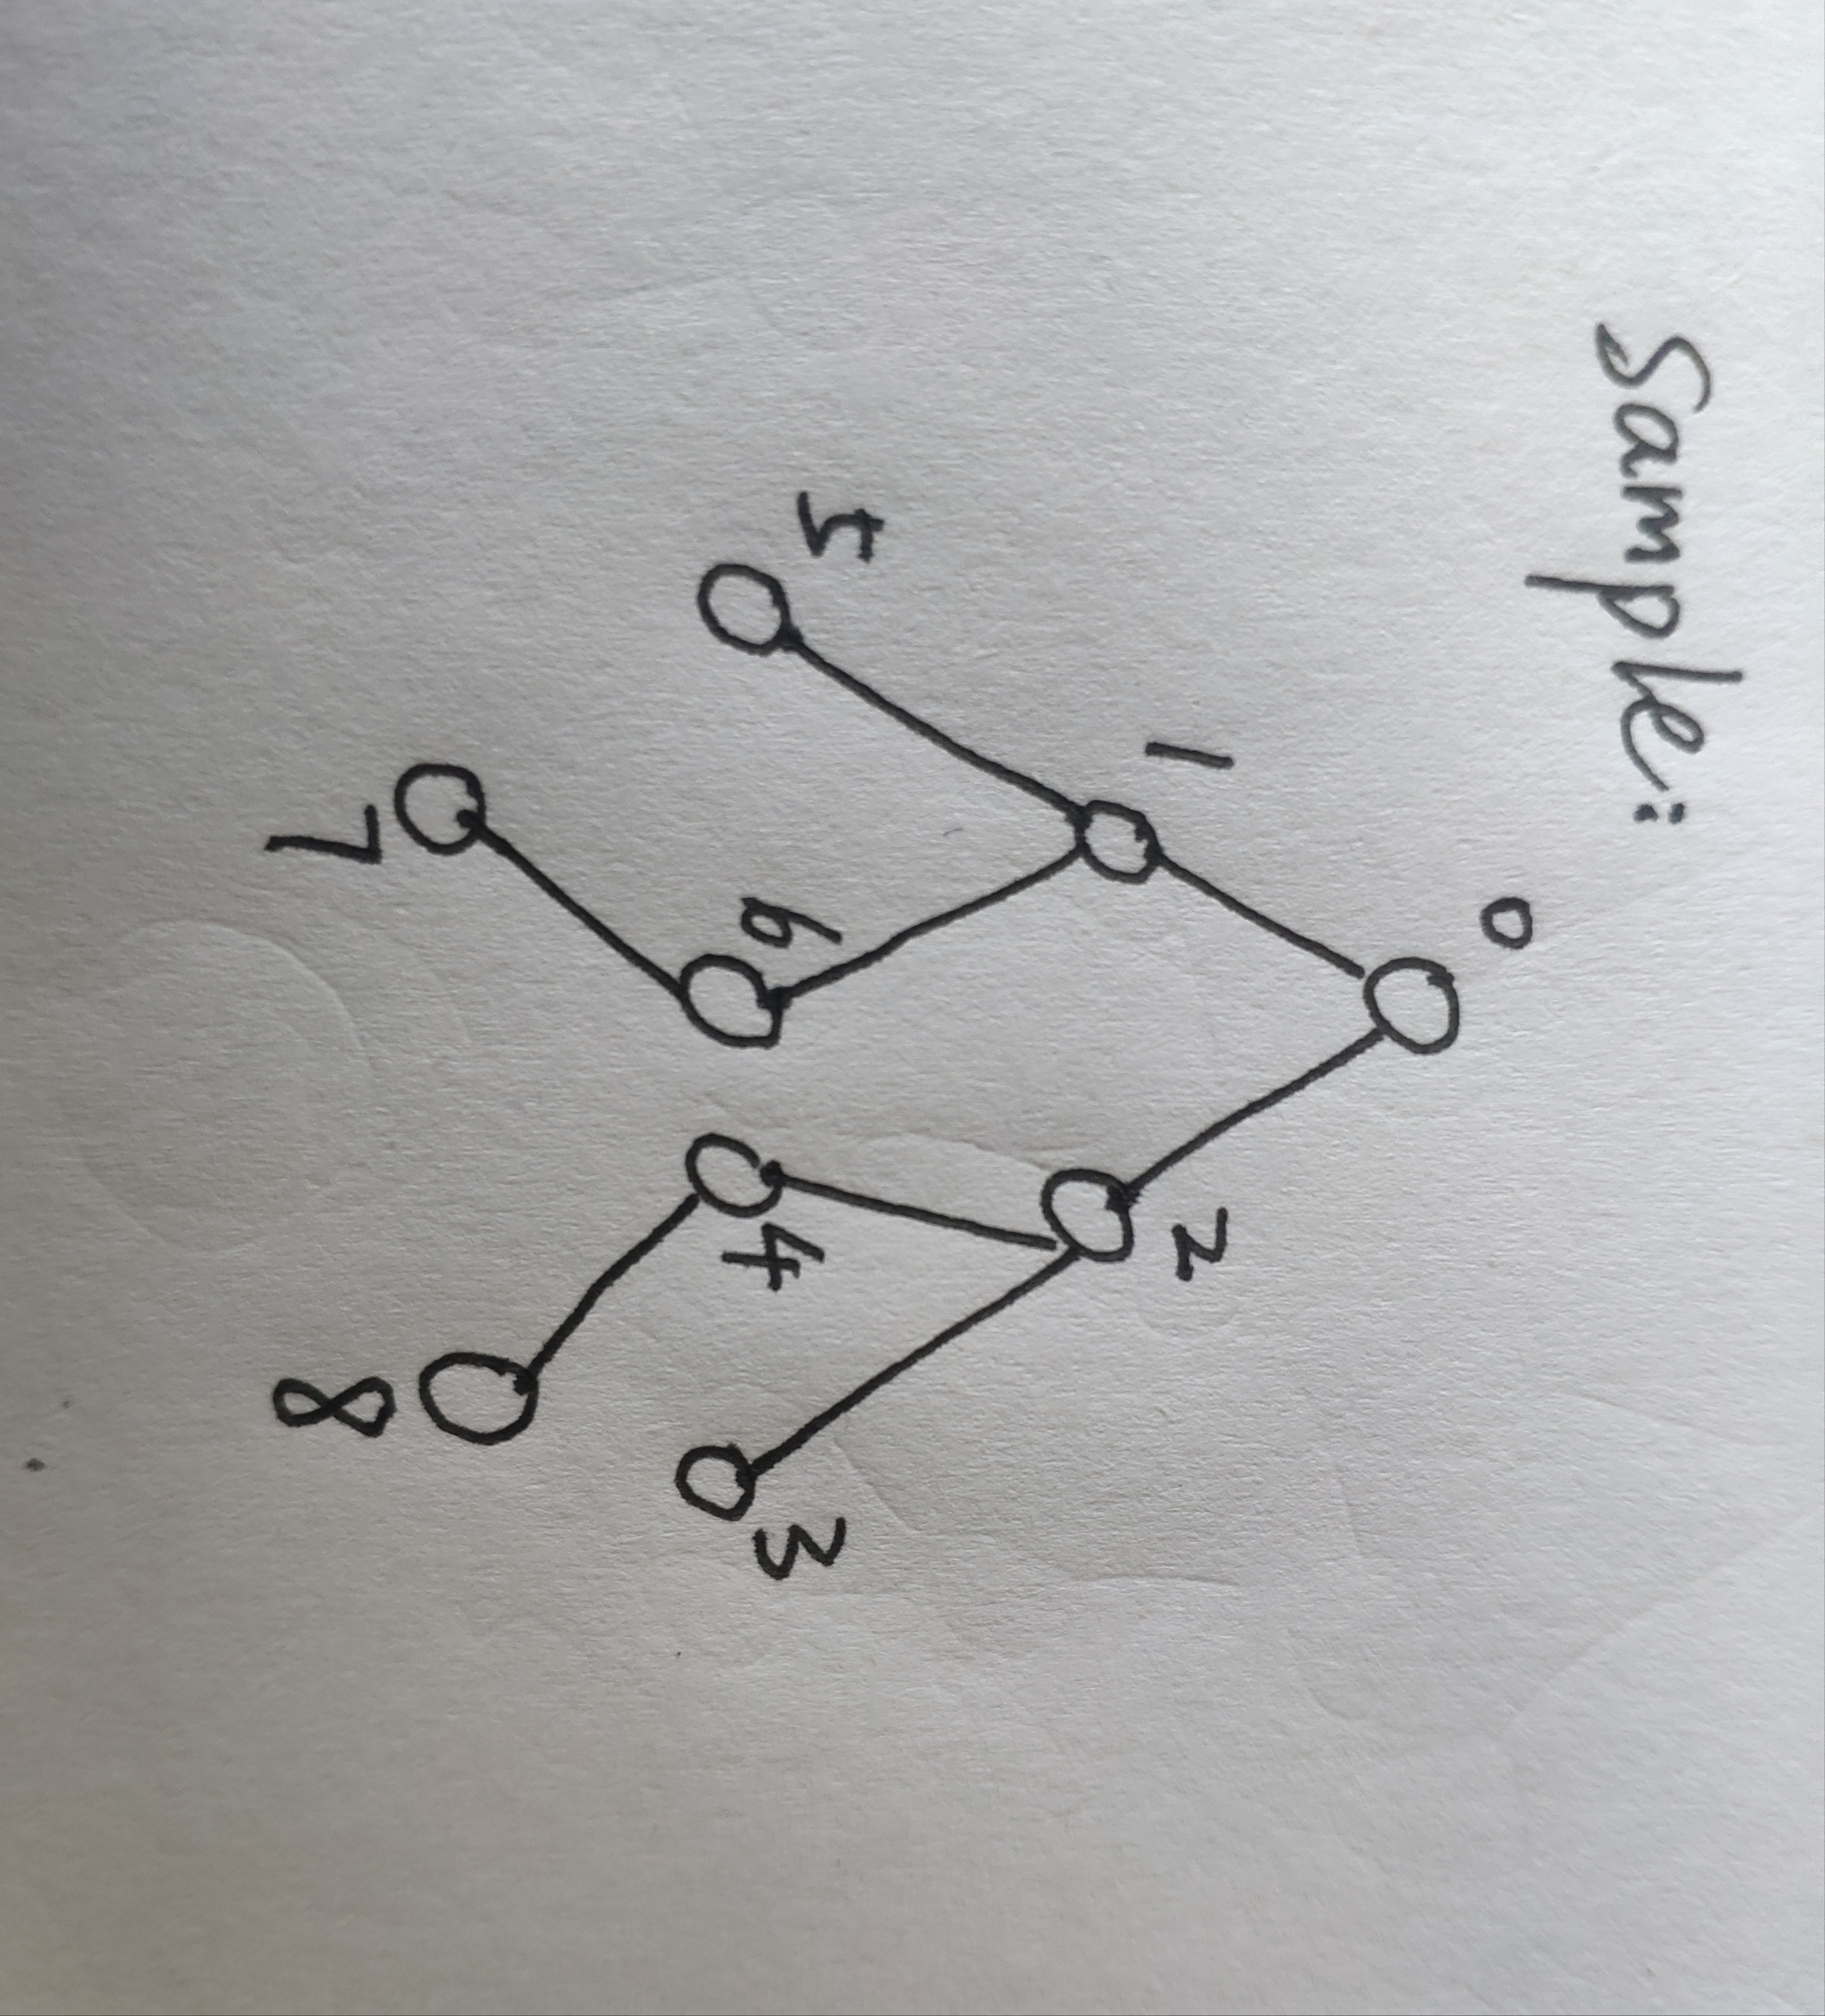 Sample:
0
1 2
5 6 4 3
7 8